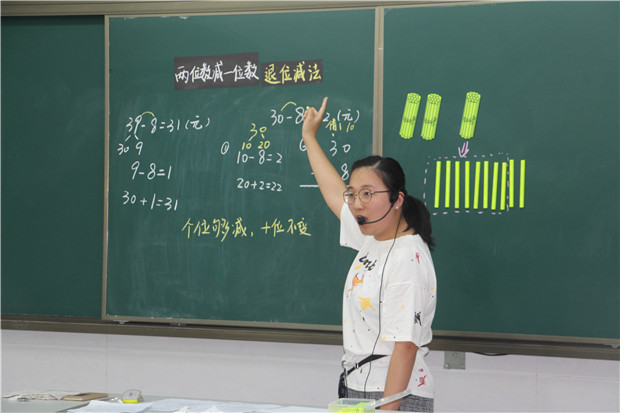 两位数减一位数 退位减法
39-8=31(元)
30 9
9-8=1
30+1=31
30-8
2(元)
30
10 20
①
10-8=2
20+2=22
30
8
个位够减，十位不变